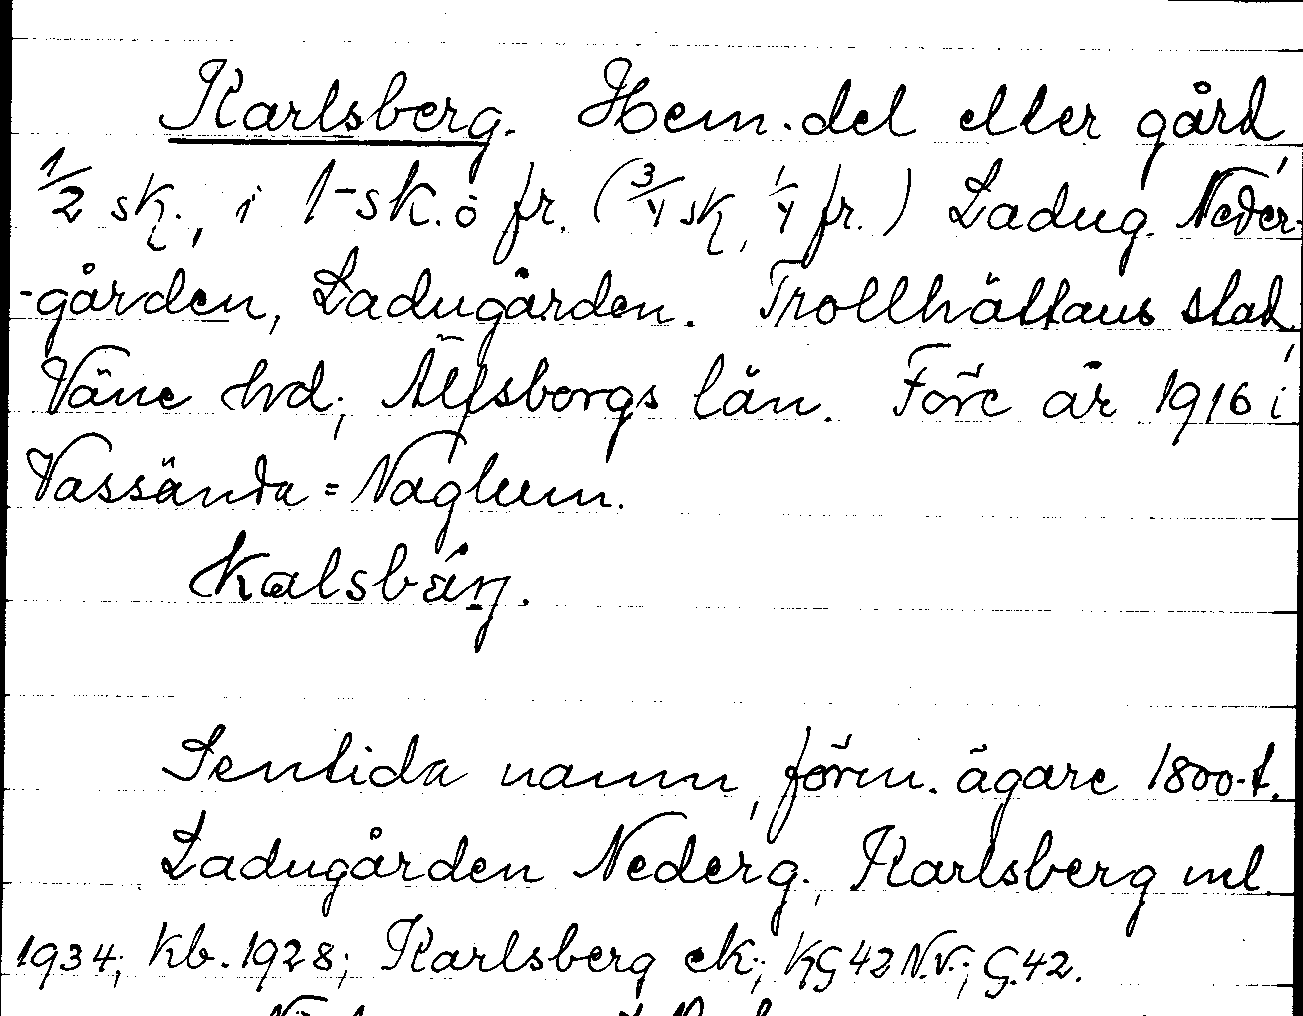 Karlsberg. Hem.del eller gård,
1/2 sk., i 1-sk. o fr. (3/4 sk, 1/4 fr.) Ladug. Neder-
-gården, Ladugården. Trollhättans stad,
Väne hrd; Älfsborgs län. Före år 1916 i
Vassända=Naglum.
Kalsbäŋ.
Sentida namn, förm. ägare 1800-t.
Ladugården Nederg., Karlsberg ml.
1934; Kb. 1928; Karlsberg ek; KG 42 N.V.; G.42.